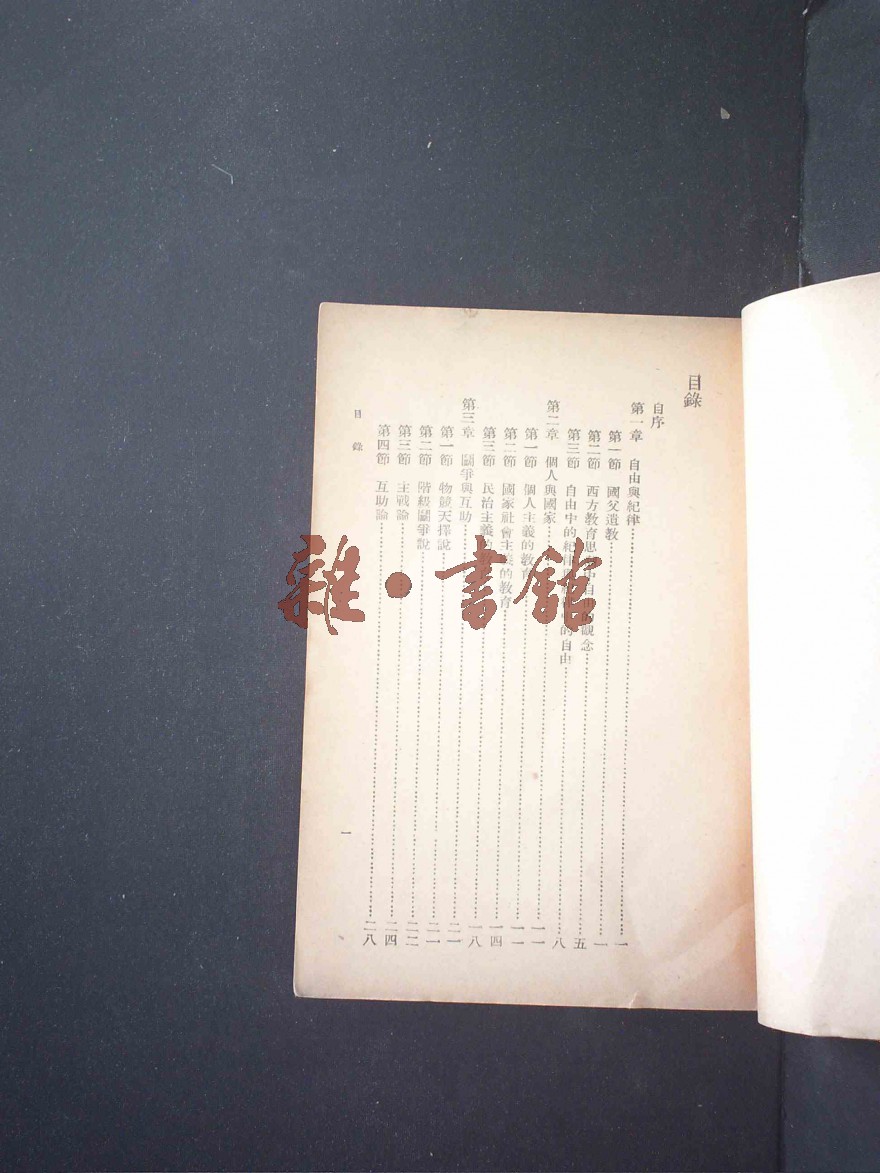 目錄
自序
第一章 自由與紀律……一
第一節 國父遺教……一
第二節 西方教育思 中自由的觀念……五
第三節 自由中的紀律 的自由……八
第二章 個人與國家……一一
第一節 個人主義的教育……一一
第二節 國家社會主義的教育……一四
第三節 民治主義的 ……一八
第三章 鬭爭與互助……二一
第一節 物競天擇說……二一
第二節 階級鬭爭說……二二
第三節 主戰論……二四
第四節 互助論……二八
目錄
一
雜·書館